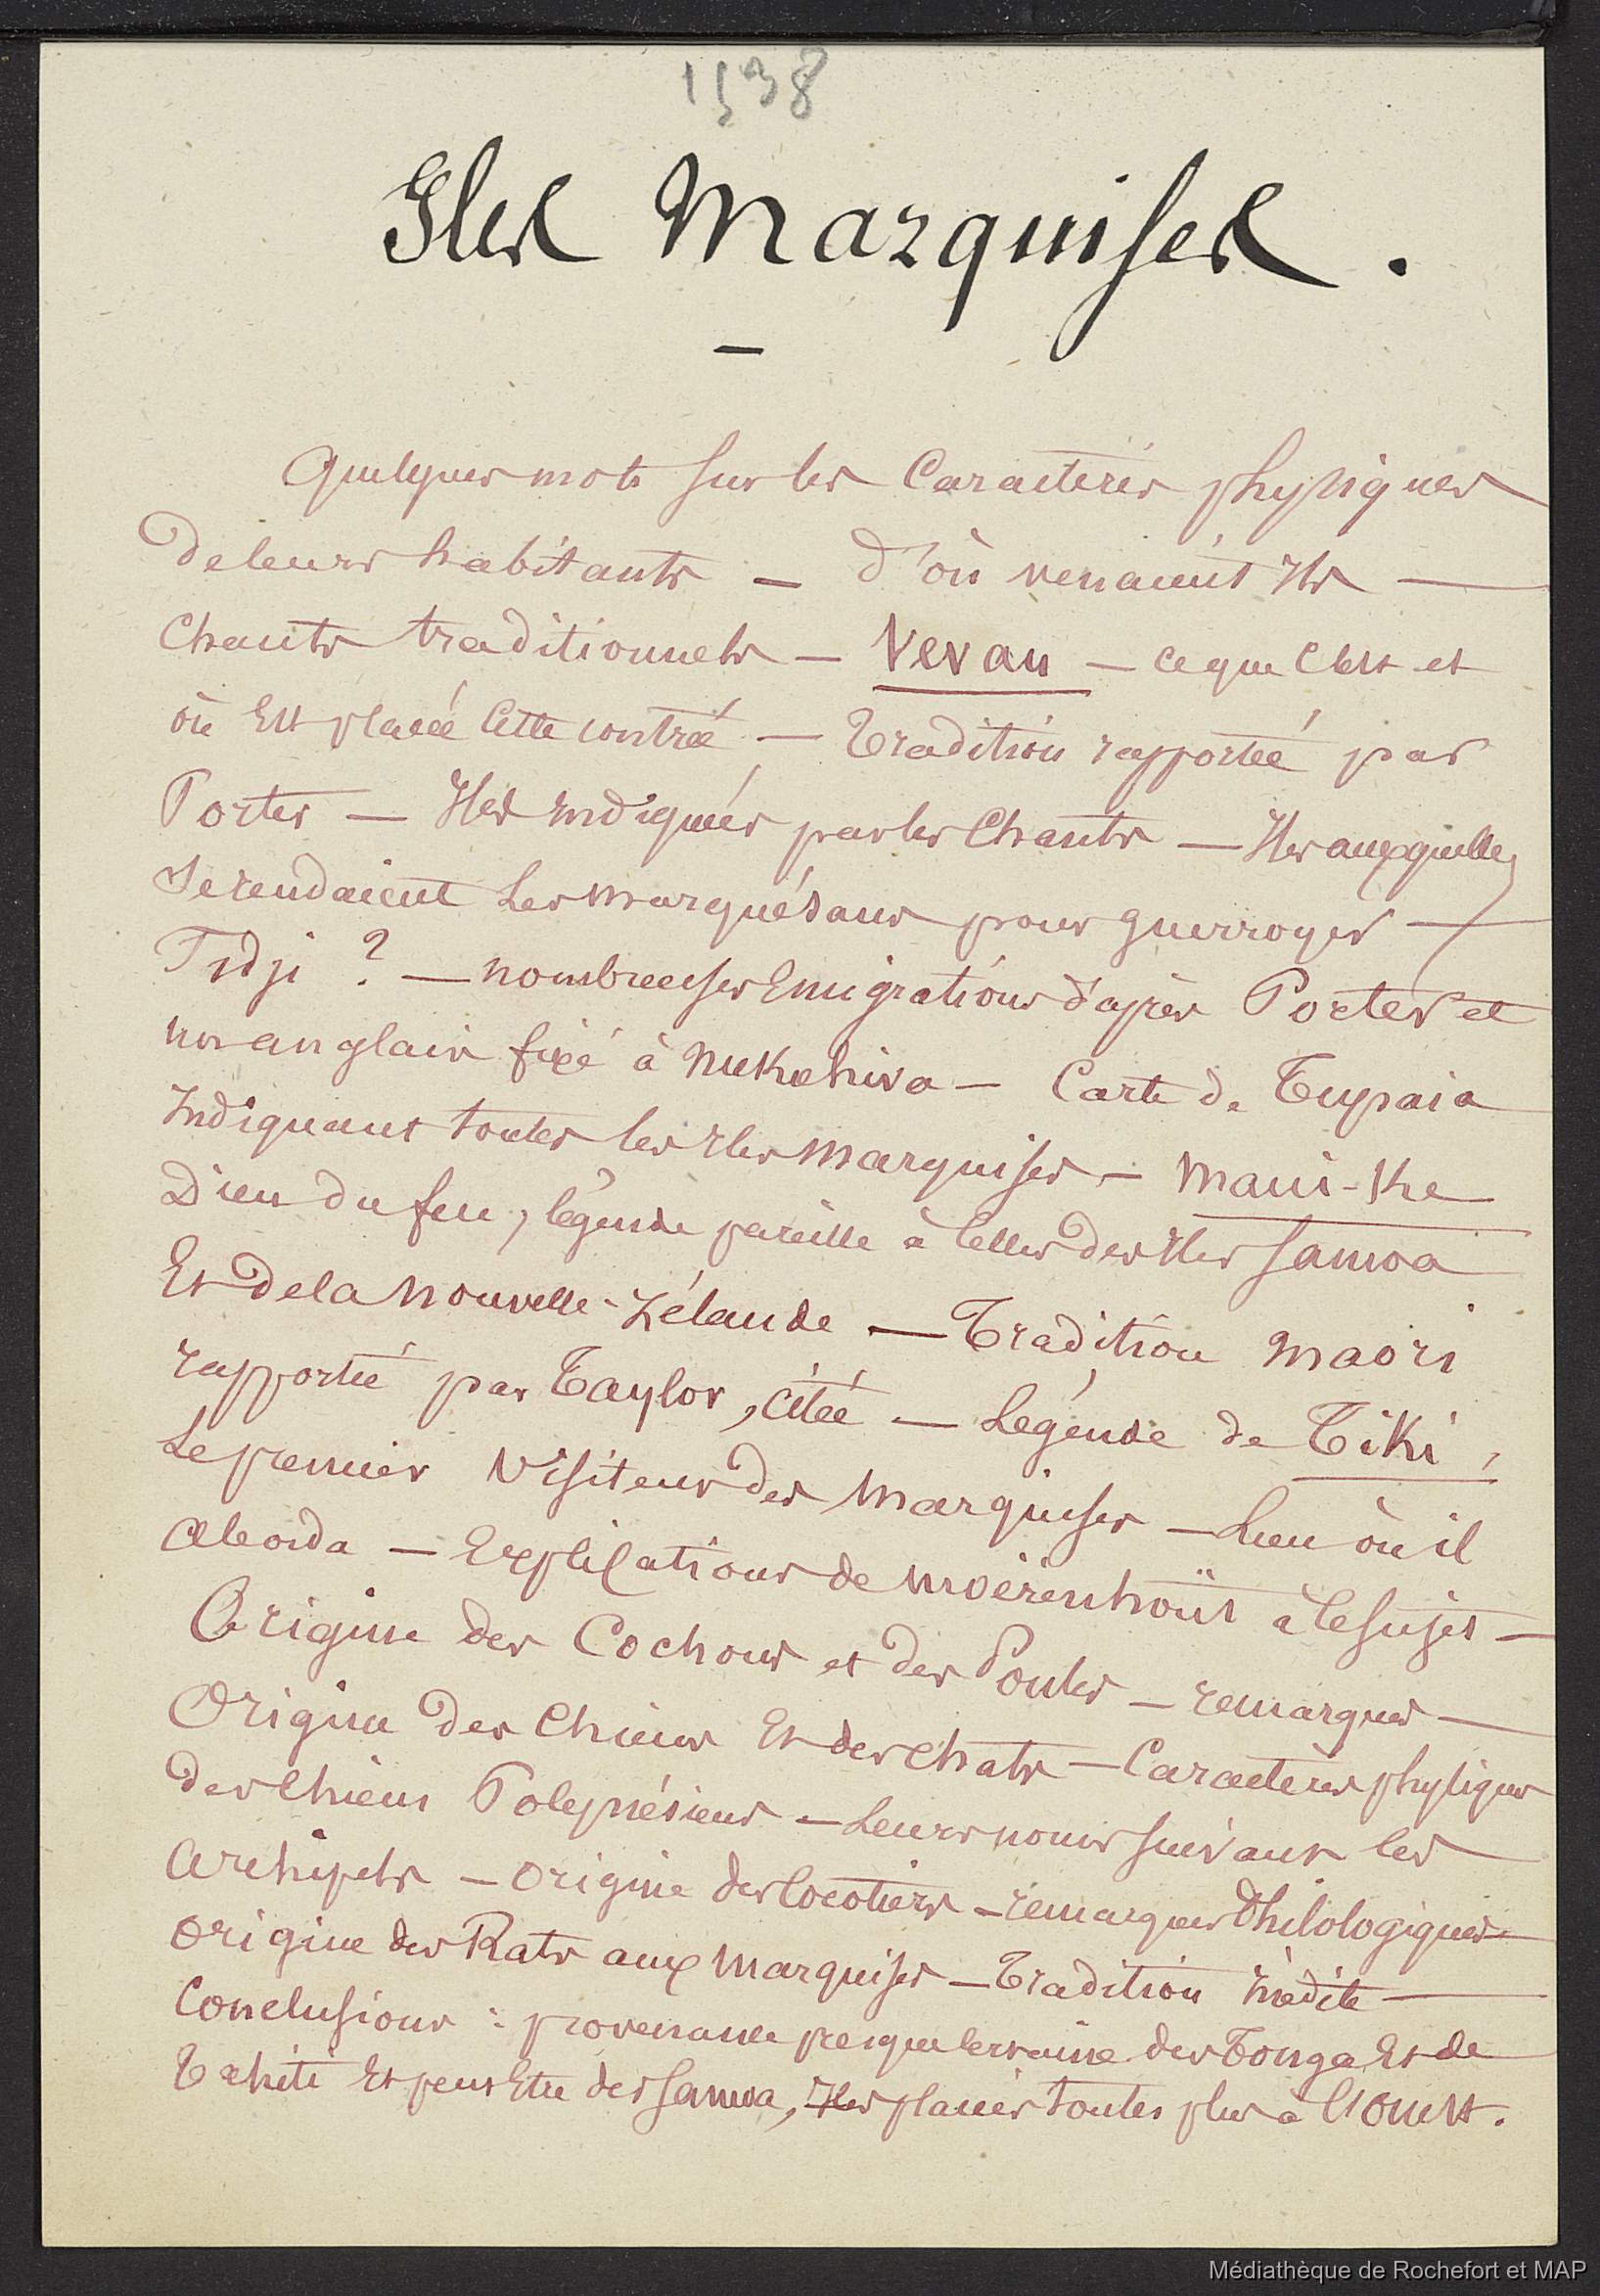 1538
Iles Marquises.
—
Quelques mots sur les Caractères physiques
de leurs habitants — d'où venaient Ils —
Chants traditionnels — Vevau — ce que c'est et
où Est placée cette contrée — Tradition rapportée par
Porter — Iles Indiquées par les Chants — Iles auxquelles
Se rendaient Les Marquésans pour guerroyer —
Fidji ? — nombreuses Emigrations d'après Porter et
un anglais fixé à Nukahiva — Carte de Tupaia
Indiquant toutes les Iles Marquises — Maui-Ke
Dieu du feu, légende pareille à celles des Iles Samoa
Et de la Nouvelle-Zélande — Tradition Maori
rapportée par Taylor, citée — Légende de Tiki,
Le premier Visiteur des Marquises — Lieu où il
aborda — Explications de Moërenhoüt à ce sujet —
Origine des Cochons et des Poules — remarques —
Origine des Chiens Et des chats — Caractères physiques
des Chiens Polynésiens — Leurs noms suivant les
Archipels — Origine des Cocotiers — remarques Philologiques —
Origine des Rats aux Marquises — Tradition Inédite —
Conclusions : provenance presque certaine des Tonga Et de
Tahiti Et peut Etre des Samoa, Iles placées toutes plus à l'Ouest.
Médiathèque de Rochefort et MAP